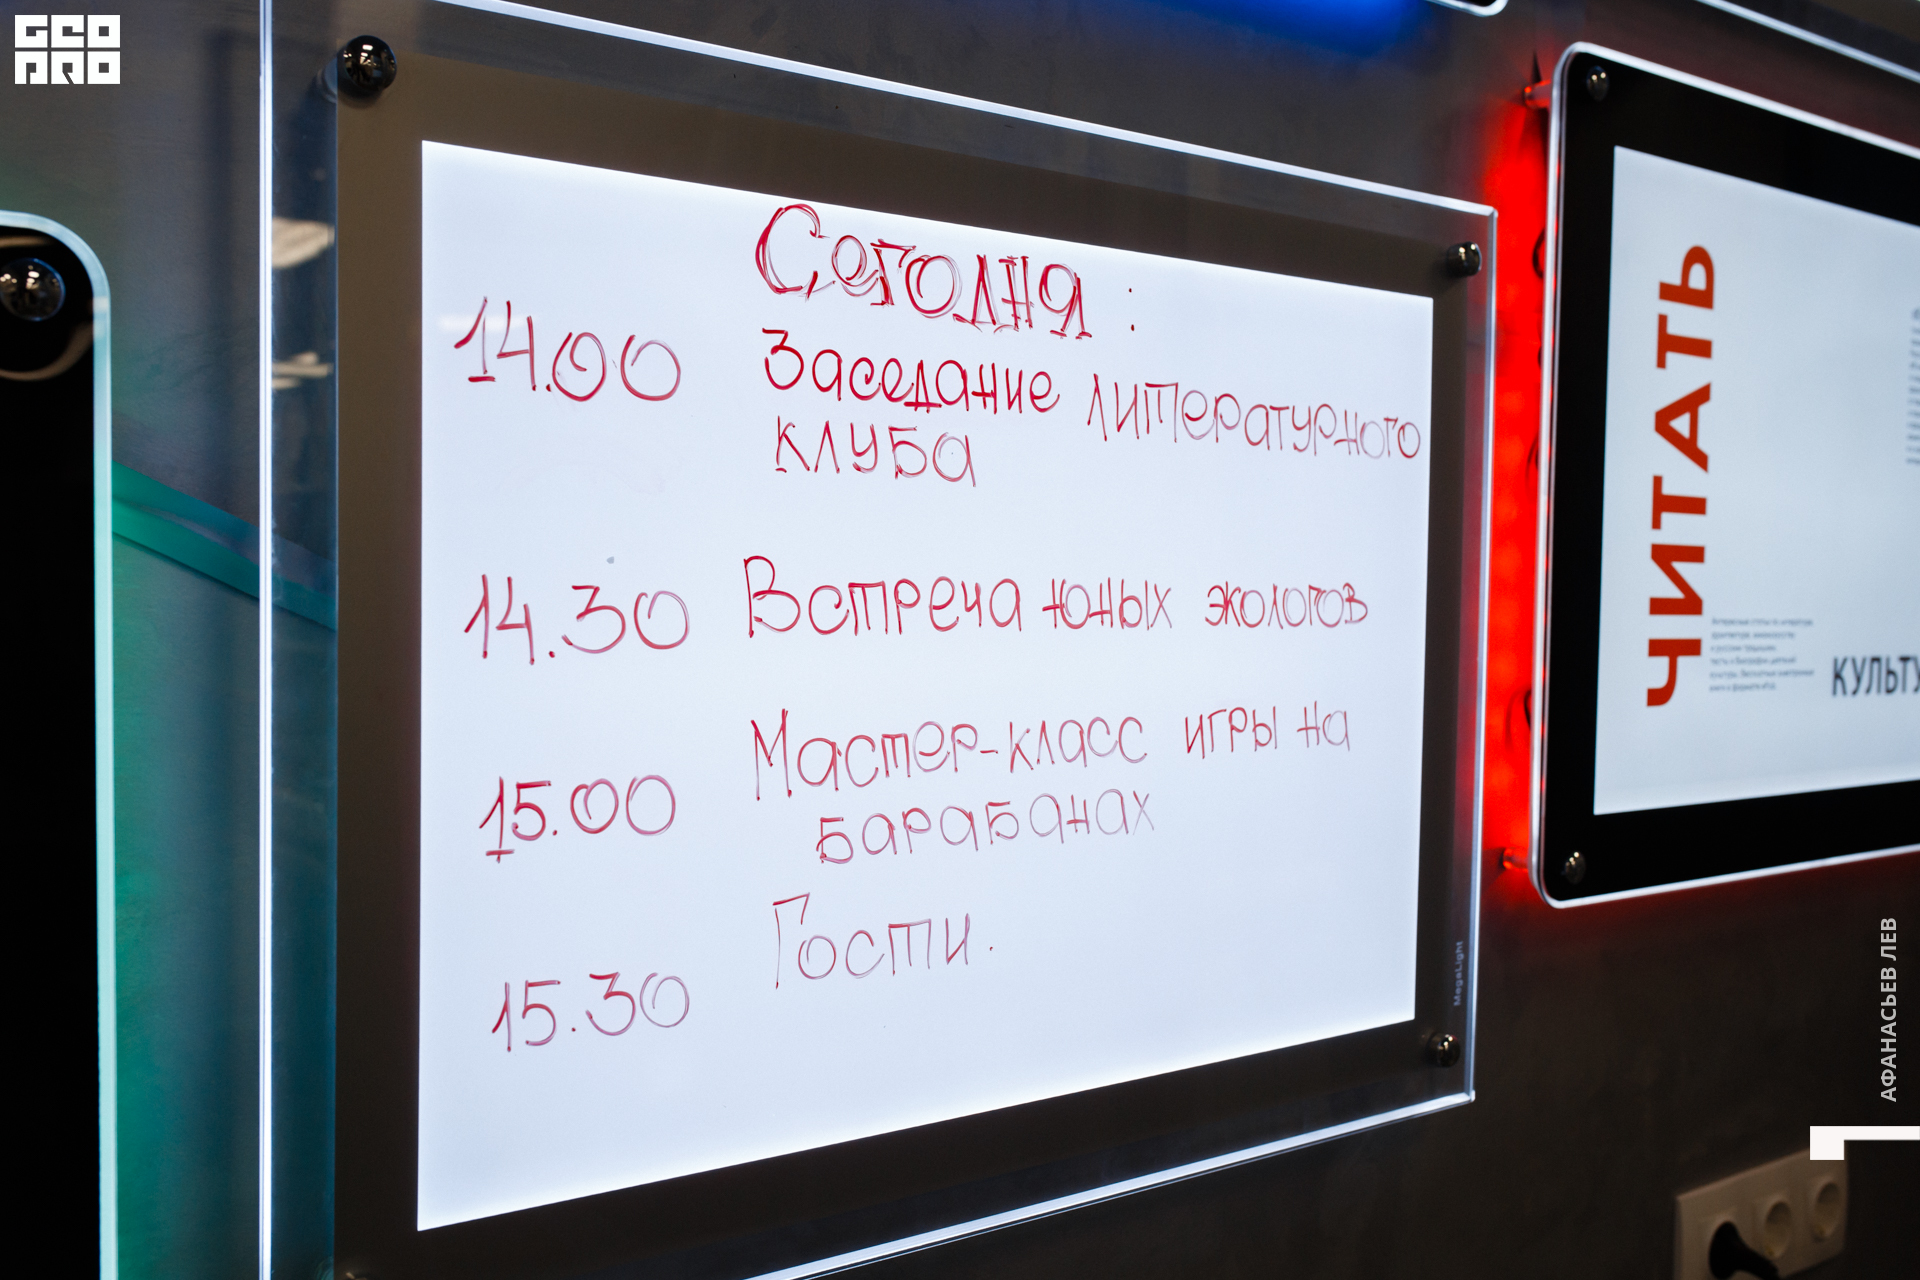 GEO
PRO
Сегодня :
14.00 Заседание литературного
клуба
14.30 Встреча юных экологов
15.00 Мастер-класс игры на
барабанах
15.30 Гости.
MegaLight
ЧИТАТЬ
КУЛЬТУ
АФАНАСЬЕВ ЛЕВ